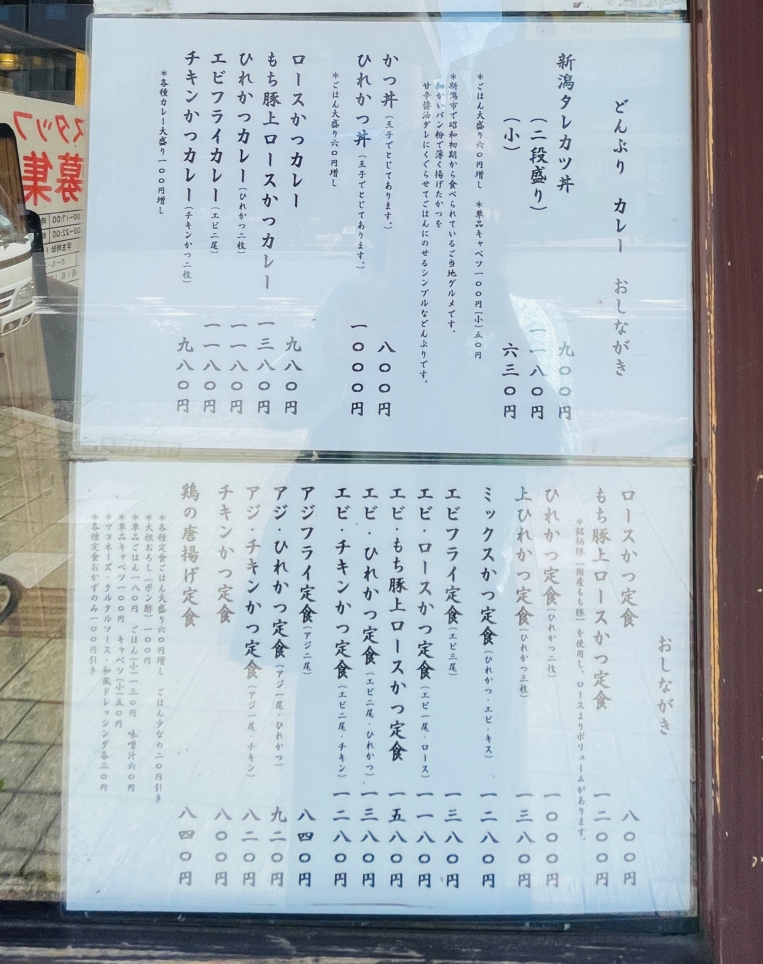 どんぶり カレー おしながき
新潟タレカツ丼 九〇〇円
(二段盛り) 一一八〇円
(小) 六三〇円
*ごはん大盛り六〇円増し *単品キャベツ一〇〇円(小)五〇円
*新潟市で昭和初期から食べられているご当地グルメです。
細かいパン粉で薄く揚げたかつを
甘辛醤油ダレにくぐらせてごはんにのせるシンプルなどんぶりです。
かつ丼(玉子でとじてあります。) 八〇〇円
ひれかつ丼(玉子でとじてあります。) 一〇〇〇円
*ごはん大盛り六〇円増し
ロースかつカレー 九八〇円
もち豚上ロースかつカレー 一三八〇円
ひれかつカレー(ひれかつ二枚) 一一八〇円
エビフライカレー(エビ二尾) 一一八〇円
チキンかつカレー(チキンかつ二枚) 九八〇円
*各種カレー大盛り一〇〇円増し
おしながき
ロースかつ定食 八〇〇円
もち豚上ロースかつ定食 一二〇〇円
*銘柄豚「国産もち豚」を使用し、ロースよりボリュームがあります。
ひれかつ定食(ひれかつ二枚) 一〇〇〇円
上ひれかつ定食(ひれかつ三枚) 一三八〇円
ミックスかつ定食(ひれかつ・エビ・キス) 一二八〇円
エビフライ定食(エビ三尾) 一三八〇円
エビ・ロースかつ定食(エビ一尾・ロース) 一一八〇円
エビ・もち豚上ロースかつ定食 一五八〇円
エビ・ひれかつ定食(エビ二尾・ひれかつ) 一三八〇円
エビ・チキンかつ定食(エビ二尾・チキン) 一二八〇円
アジフライ定食(アジ二尾) 八四〇円
アジ・ひれかつ定食(アジ一尾・ひれかつ) 九二〇円
アジ・チキンかつ定食(アジ一尾・チキン) 八二〇円
チキンかつ定食 八〇〇円
鶏の唐揚げ定食 八四〇円
*各種定食ごはん大盛り六〇円増し ごはん少なめ二〇円引き
*大根おろし(ポン酢)一〇〇円
*単品ごはん一八〇円 ごはん(小)一三〇円 味噌汁六〇円
*単品キャベツ一〇〇円 キャベツ(小)五〇円
*マヨネーズ・タルタルソース・和風ドレッシング各三〇円
*各種定食おかずのみ一〇〇円引き
スタッフ
募集